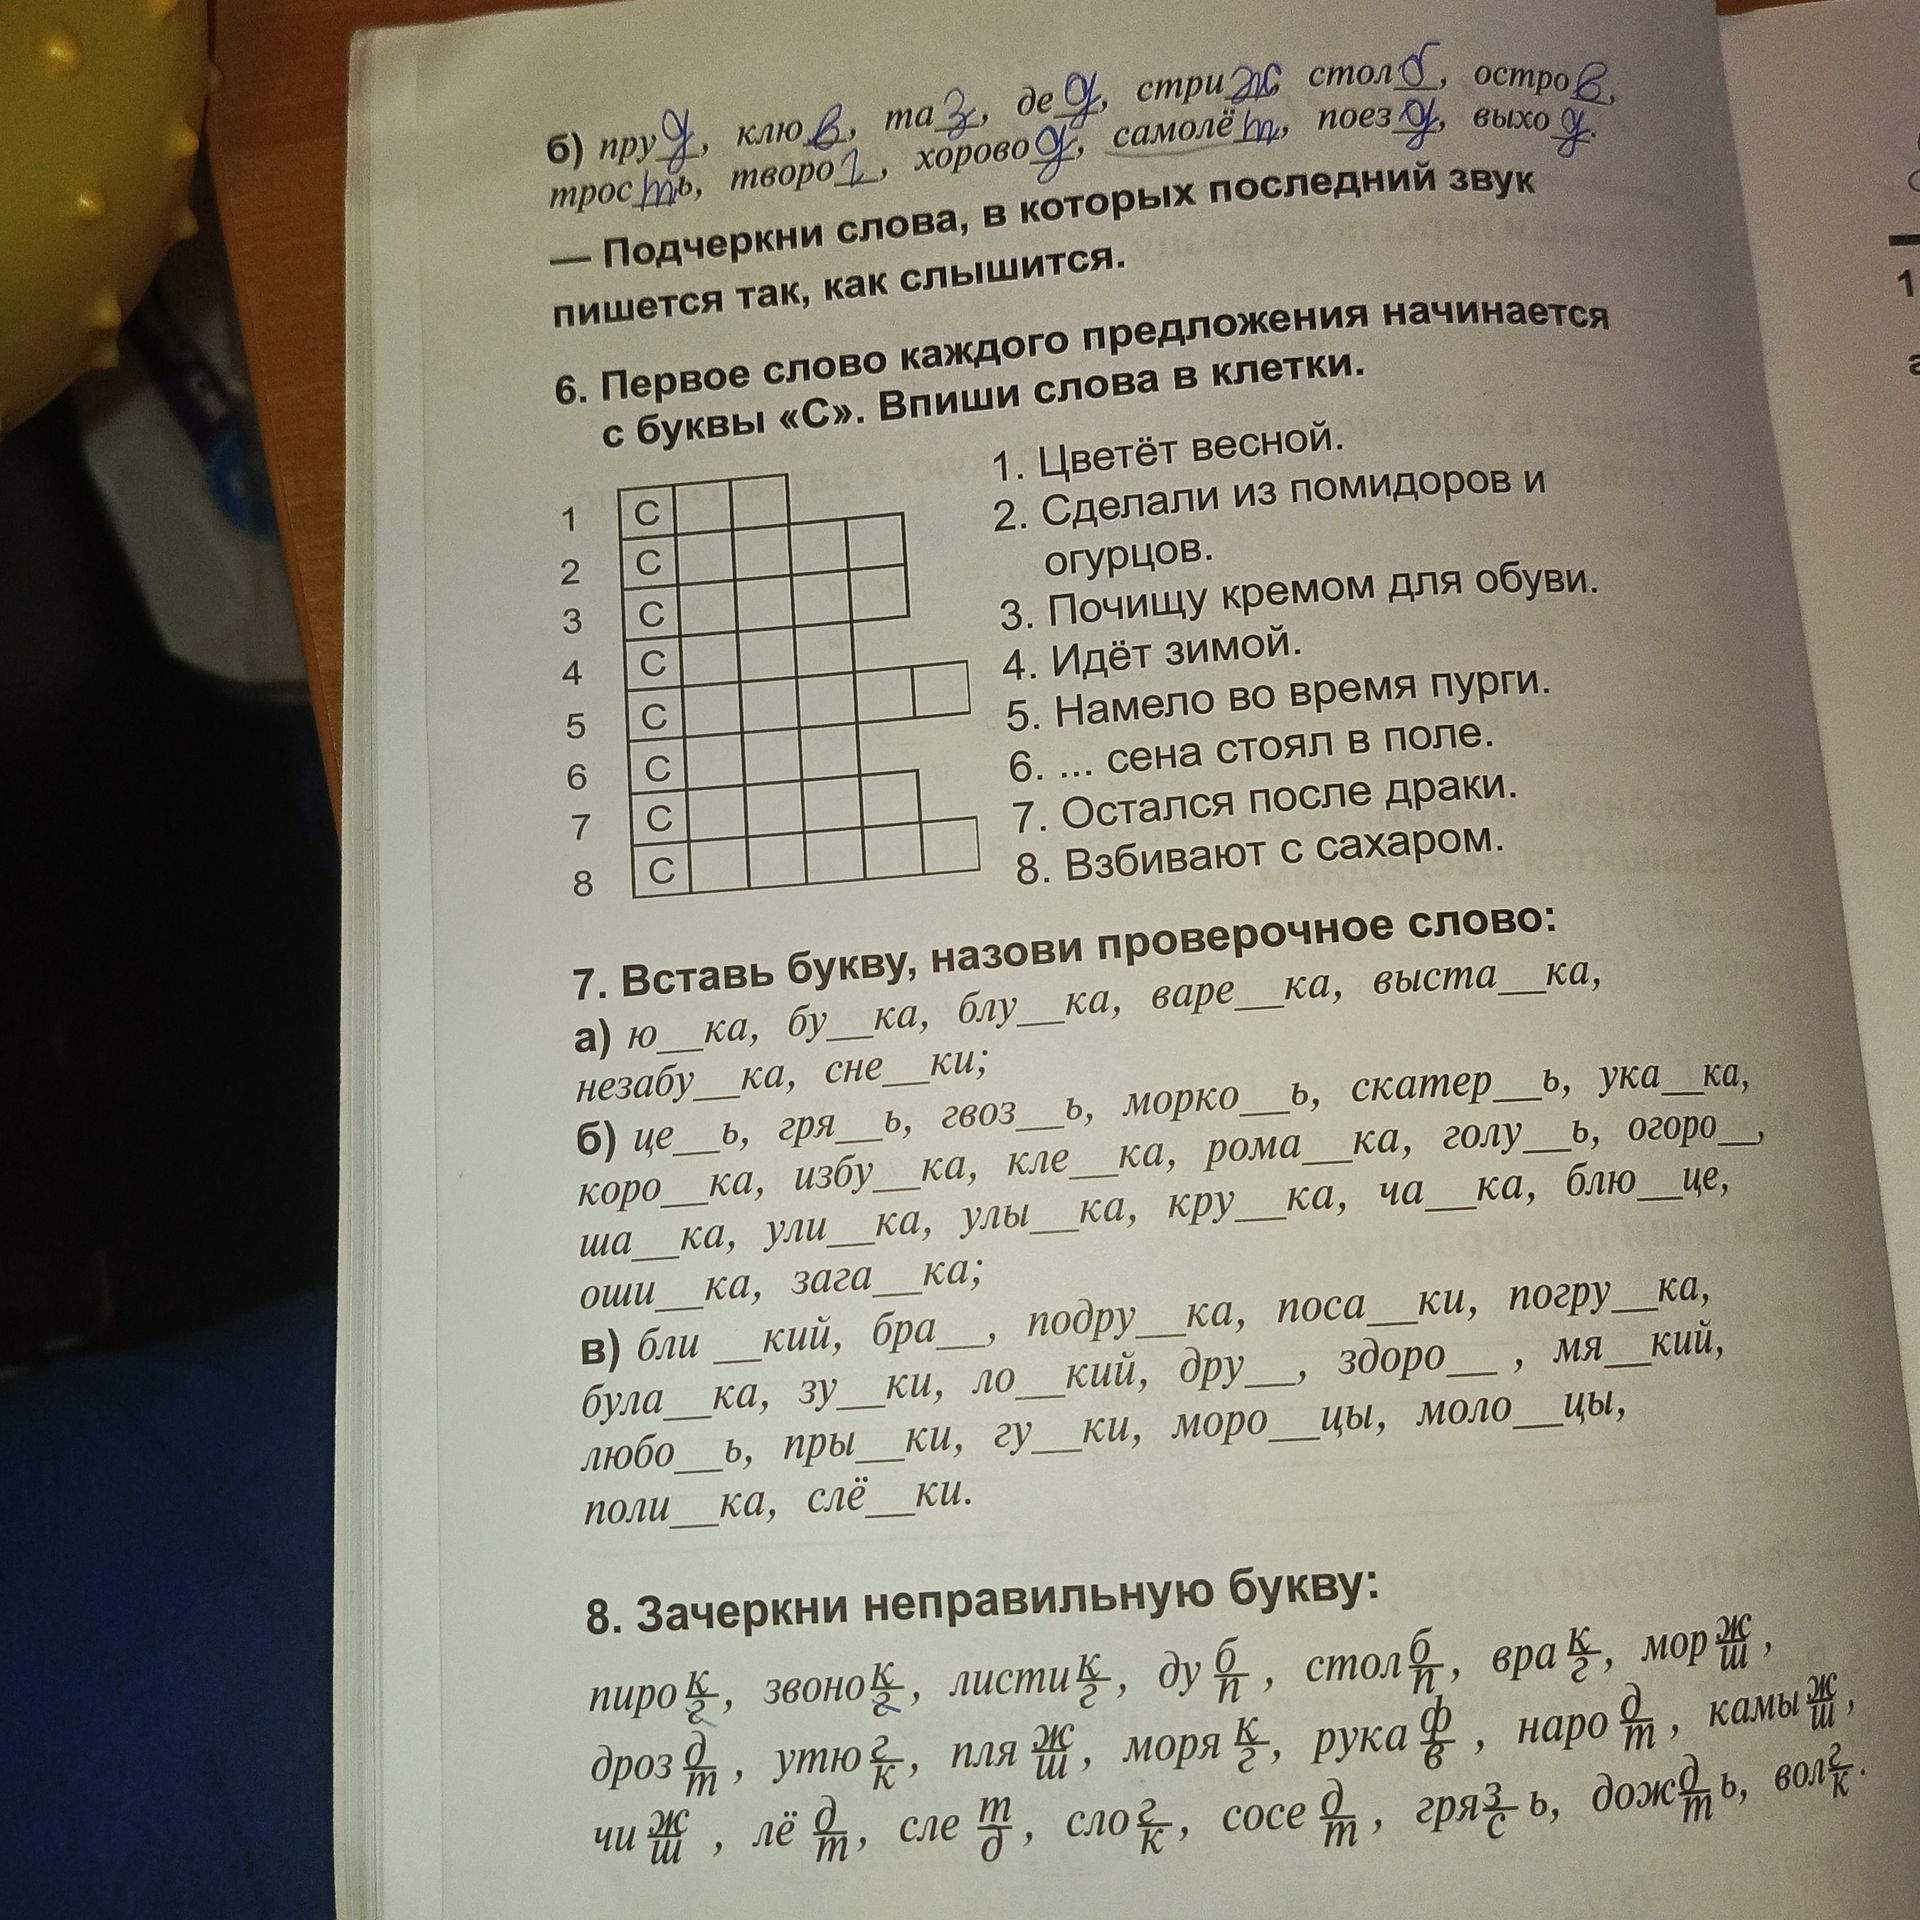 б) пруд, клюв, таз, дед, стриж, столб, остров,
трость, творог, хоровод, самолёт, поезд, выход.
— Подчеркни слова, в которых последний звук
пишется так, как слышится.
6. Первое слово каждого предложения начинается
с буквы «С». Впиши слова в клетки.
1 С
2 С
3 С
4 С
5 С
6 С
7 С
8 С
1. Цветёт весной.
2. Сделали из помидоров и
огурцов.
3. Почищу кремом для обуви.
4. Идёт зимой.
5. Намело во время пурги.
6. ... сена стоял в поле.
7. Остался после драки.
8. Взбивают с сахаром.
7. Вставь букву, назови проверочное слово:
а) ю__ка, бу__ка, блу__ка, варе__ка, выста__ка,
незабу__ка, сне__ки;
б) це__ь, гря__ь, гвоз__ь, морко__ь, скатер__ь, ука__ка,
коро__ка, избу__ка, кле__ка, рома__ка, голу__ь, огоро__,
ша__ка, ули__ка, улы__ка, кру__ка, ча__ка, блю__це,
оши__ка, зага__ка;
в) бли __кий, бра__, подру__ка, поса__ки, погру__ка,
була__ка, зу__ки, ло__кий, дру__, здоро__ , мя__кий,
любо__ь, пры__ки, гу__ки, моро__цы, моло__цы,
поли__ка, слё__ки.
8. Зачеркни неправильную букву:
пиро к/г, звоно к/г, листи к/г, ду б/п, стол б/п, вра к/г, мор ж/ш,
дроз д/т, утю г/к, пля ж/ш, моря к/г, рука ф/в, наро д/т, камы ж/ш,
чи ж/ш, лё д/т, сле т/д, сло г/к, сосе д/т, гря з/с ь, дож д/т ь, вол г/к.
1